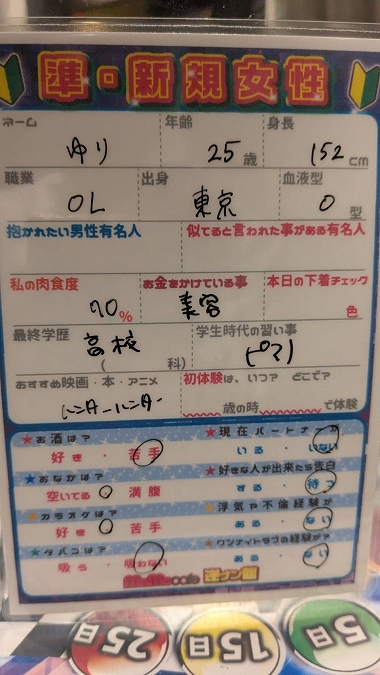 準・新規女性
ネーム 年齢 身長
ゆり 25歳 152cm
職業 出身 血液型
OL 東京 O型
抱かれたい男性有名人 似てると言われた事がある有名人
私の肉食度 お金をかけている事 本日の下着チェック
70% 美容 色
最終学歴 学生時代の習い事
高校 ( 科) ピアノ
おすすめ映画・本・アニメ 初体験は、いつ? どこで?
ハンターハンター 歳の時 で体験
★お酒は? ★現在パートナーが
好き・苦手 いる・いない
★おなかは? ★好きな人が出来たら告白
空いてる・満腹 する・待つ
★カラオケは? ★浮気や不倫経験が
好き・苦手 ある・ない
★タバコは? ★ワンナイトラブの経験が?
吸う・吸わない ある・ない
cafe
25日 15日 5日